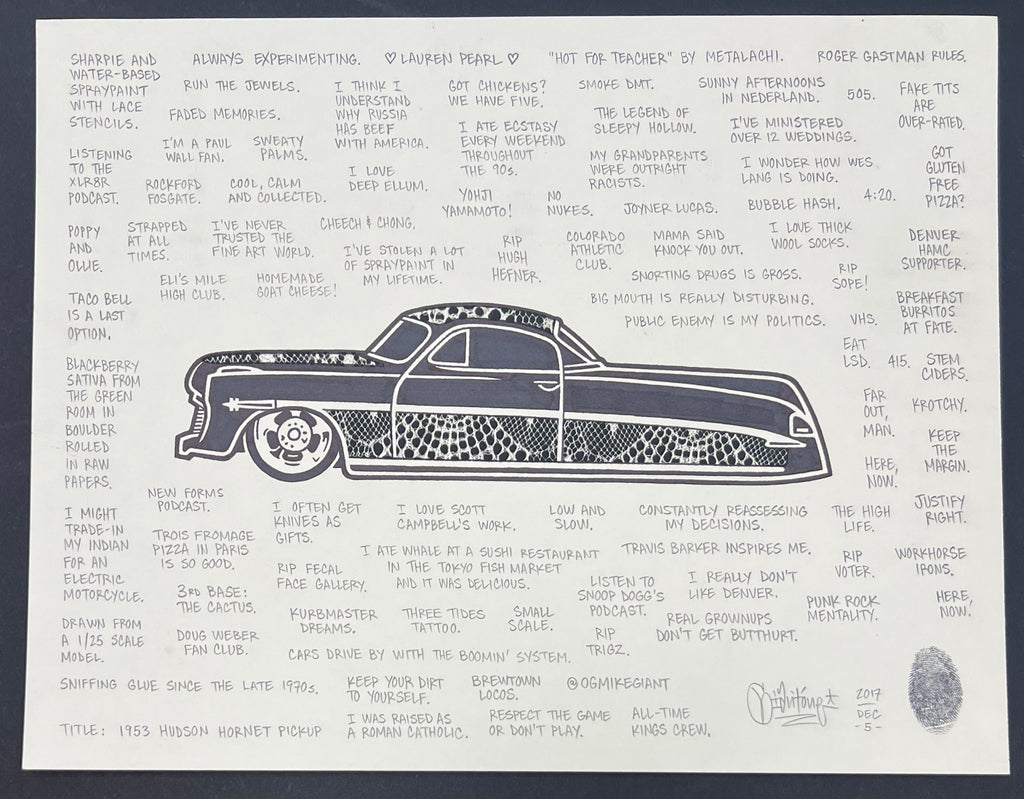 SHARPIE AND
WATER-BASED
SPRAYPAINT
WITH LACE
STENCILS.
ALWAYS EXPERIMENTING.
♡ LAUREN PEARL ♡
"HOT FOR TEACHER" BY METALACHI.
ROGER GASTMAN RULES.
RUN THE JEWELS.
I THINK I
UNDERSTAND
WHY RUSSIA
HAS BEEF
WITH AMERICA.
GOT CHICKENS?
WE HAVE FIVE.
SMOKE DMT.
SUNNY AFTERNOONS
IN NEDERLAND.
505.
FAKE TITS
ARE
OVER-RATED.
FADED MEMORIES.
I ATE ECSTASY
EVERY WEEKEND
THROUGHOUT
THE 90s.
THE LEGEND OF
SLEEPY HOLLOW.
I'VE MINISTERED
OVER 12 WEDDINGS.
I'M A PAUL
WALL FAN.
SWEATY
PALMS.
LISTENING
TO THE
XLR8R
PODCAST.
I LOVE
DEEP ELLUM.
MY GRANDPARENTS
WERE OUTRIGHT
RACISTS.
I WONDER HOW WES
LANG IS DOING.
GOT
GLUTEN
FREE
PIZZA?
ROCKFORD
FOSGATE.
COOL, CALM
AND COLLECTED.
YOHJI
YAMAMOTO!
NO
NUKES.
JOYNER LUCAS.
BUBBLE HASH.
4:20.
POPPY
AND
OLLIE.
STRAPPED
AT ALL
TIMES.
I'VE NEVER
TRUSTED THE
FINE ART WORLD.
CHEECH & CHONG.
I'VE STOLEN A LOT
OF SPRAYPAINT IN
MY LIFETIME.
RIP
HUGH
HEFNER.
COLORADO
ATHLETIC
CLUB.
MAMA SAID
KNOCK YOU OUT.
I LOVE THICK
WOOL SOCKS.
DENVER
HAMC
SUPPORTER.
ELI'S MILE
HIGH CLUB.
HOMEMADE
GOAT CHEESE!
SNORTING DRUGS IS GROSS.
RIP
SOPE!
TACO BELL
IS A LAST
OPTION.
BIG MOUTH IS REALLY DISTURBING.
BREAKFAST
BURRITOS
AT FATE.
PUBLIC ENEMY IS MY POLITICS.
VHS.
EAT
LSD.
415.
STEM
CIDERS.
BLACKBERRY
SATIVA FROM
THE GREEN
ROOM IN
BOULDER
ROLLED
IN RAW
PAPERS.
FAR
OUT,
MAN.
KROTCHY.
KEEP
THE
MARGIN.
HERE,
NOW.
NEW FORMS
PODCAST.
I OFTEN GET
KNIVES AS
GIFTS.
I LOVE SCOTT
CAMPBELL'S WORK.
LOW AND
SLOW.
CONSTANTLY REASSESSING
MY DECISIONS.
THE HIGH
LIFE.
JUSTIFY
RIGHT.
I MIGHT
TRADE-IN
MY INDIAN
FOR AN
ELECTRIC
MOTORCYCLE.
TROIS FROMAGE
PIZZA IN PARIS
IS SO GOOD.
I ATE WHALE AT A SUSHI RESTAURANT
IN THE TOKYO FISH MARKET
AND IT WAS DELICIOUS.
TRAVIS BARKER INSPIRES ME.
RIP
VOTER.
WORKHORSE
IRONS.
RIP FECAL
FACE GALLERY.
3RD BASE:
THE CACTUS.
LISTEN TO
SNOOP DOGG'S
PODCAST.
I REALLY DON'T
LIKE DENVER.
PUNK ROCK
MENTALITY.
HERE,
NOW.
KURBMASTER
DREAMS.
THREE TIDES
TATTOO.
SMALL
SCALE.
REAL GROWNUPS
DON'T GET BUTTHURT.
DRAWN FROM
A 1/25 SCALE
MODEL.
DOUG WEBER
FAN CLUB.
RIP
TRIGZ.
CARS DRIVE BY WITH THE BOOMIN' SYSTEM.
SNIFFING GLUE SINCE THE LATE 1970s.
KEEP YOUR DIRT
TO YOURSELF.
BREWTOWN
LOCOS.
@OGMIKEGIANT
2017
DEC
-5-
TITLE: 1953 HUDSON HORNET PICKUP
I WAS RAISED AS
A ROMAN CATHOLIC.
RESPECT THE GAME
OR DON'T PLAY.
ALL-TIME
KINGS CREW.